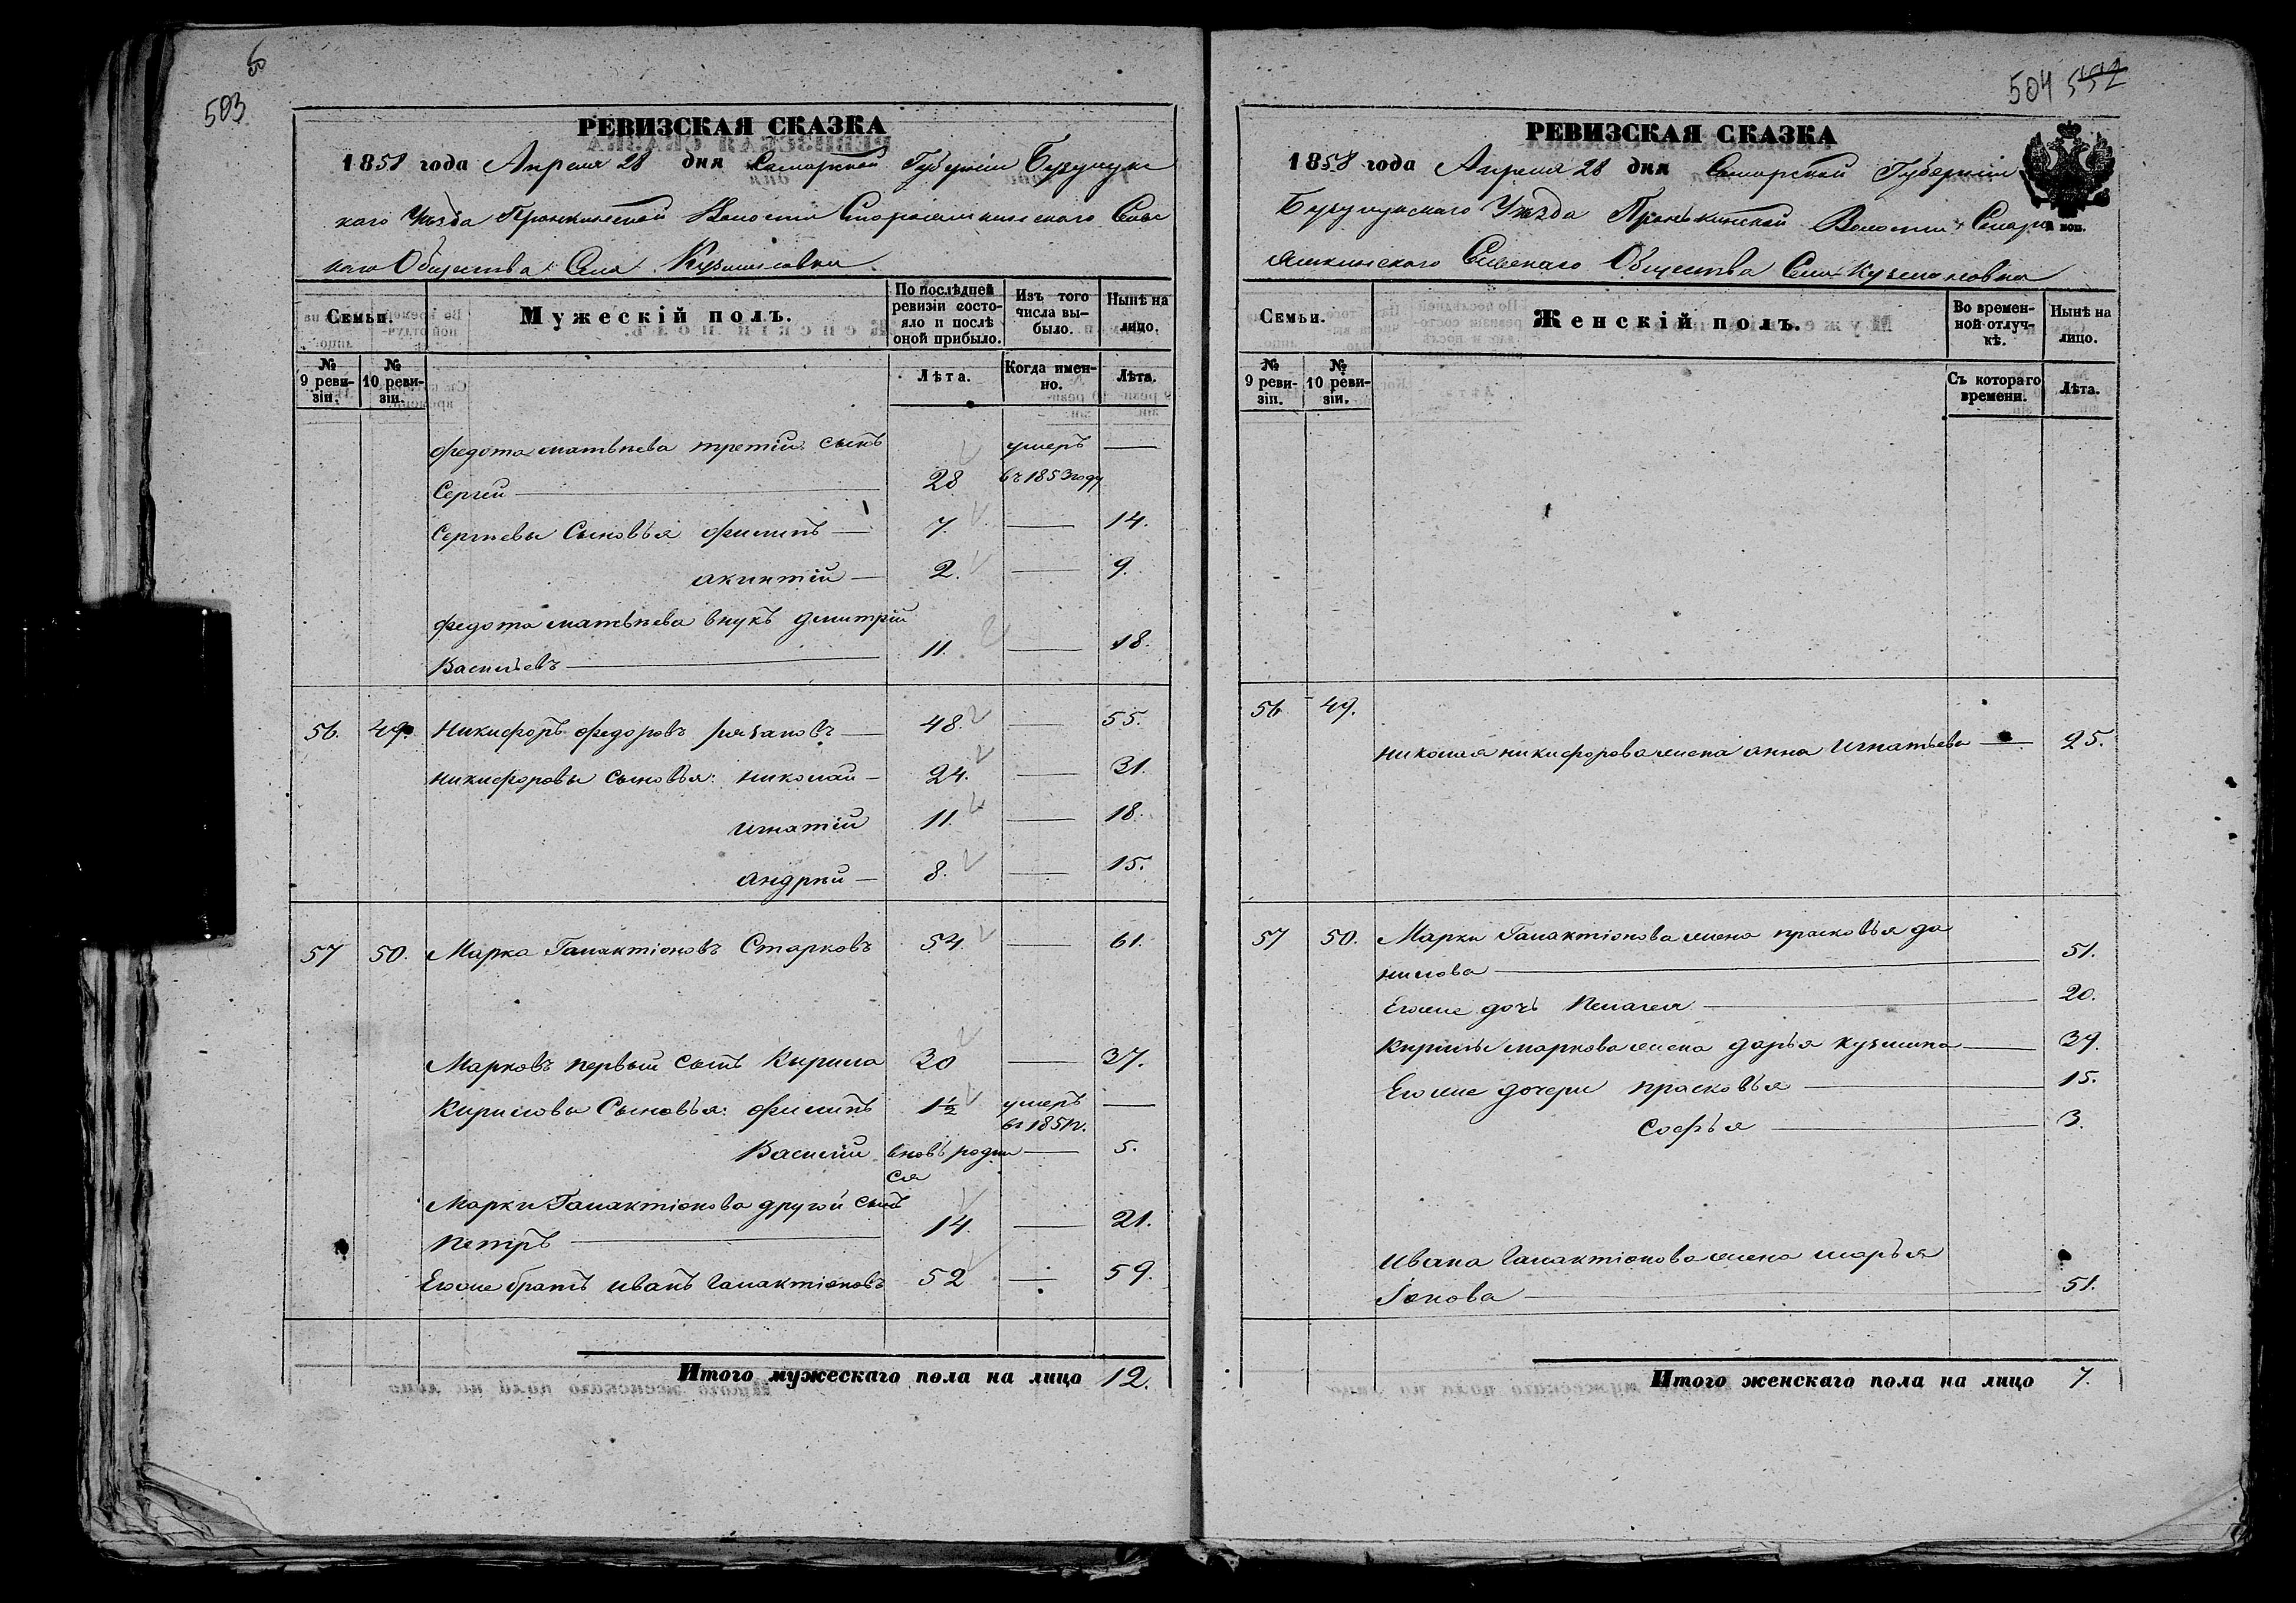 503
РЕВИЗСКАЯ СКАЗКА
1858 года Апреля 28 дня Самарской Губерніи Бузулукс
каго Уѣзда Пронькинской Волости Староякшинского Сельс
каго Общества Села Кузминовки
Семьи.
Мужескій полъ.
По послѣдней ревизіи состояло и послѣ оной прибыло.
Изъ того числа выбыло.
Нынѣ на лицо.
№ 9 ревизіи.
№ 10 ревизіи.
Лѣта.
Когда именно.
Лѣта.
Федота Матвѣева третій сынъ умеръ —
Сергей — 28 въ 1853 году
Сергѣевы Сыновья Филипъ — 7. — 14.
Акинтій — 2. — 9.
Федота Матвѣева внукъ Дмитрій
Васильевъ — 11. — 18.
56. 49. Никифоръ Федоровъ Рязановъ — 48. — 55.
Никифоровы сыновья: Николай — 24. — 31.
Игнатій 11. — 18.
Андрѣй — 8. — 15.
57 50. Марка Галактіоновъ Старковъ 54. — 61.
Марковъ первый сынъ Кирила 30 — 37.
Кириловы Сыновья: Филипъ 1½ умеръ —
въ 1851 г.
Василій вновь родил — 5.
ся
Марки Галактіонова другой сынъ
Петръ — 14. — 21.
Егоже братъ Иванъ Галактіоновъ 52 — 59.
Итого мужескаго пола на лицо 12.
504 552
РЕВИЗСКАЯ СКАЗКА
1858 года Апреля 28 дня Самарской Губерніи
Бузулукскаго Уѣзда Пронькинской Волости Старо
коп.
якшинского Сельскаго Общества Села Кузминовки
Семьи.
Женскій полъ.
Во временной отлучкѣ.
Нынѣ на лицо.
№ 9 ревизіи.
№ 10 ревизіи.
Съ котораго времени.
Лѣта.
56 49.
Николая Никифорова жена Анна Игнатьева — 25.
57 50. Марки Галактіонова жена Прасковья Да
нилова — 51.
Егоже дочь Пелагея — 20.
Кирилы Маркова жена Дарья Кузмина — 39.
Егоже дочери Прасковья — 15.
Софья — 3.
Ивана Галактіонова жена Марья
Іонова — 51.
Итого женскаго пола на лицо 7.